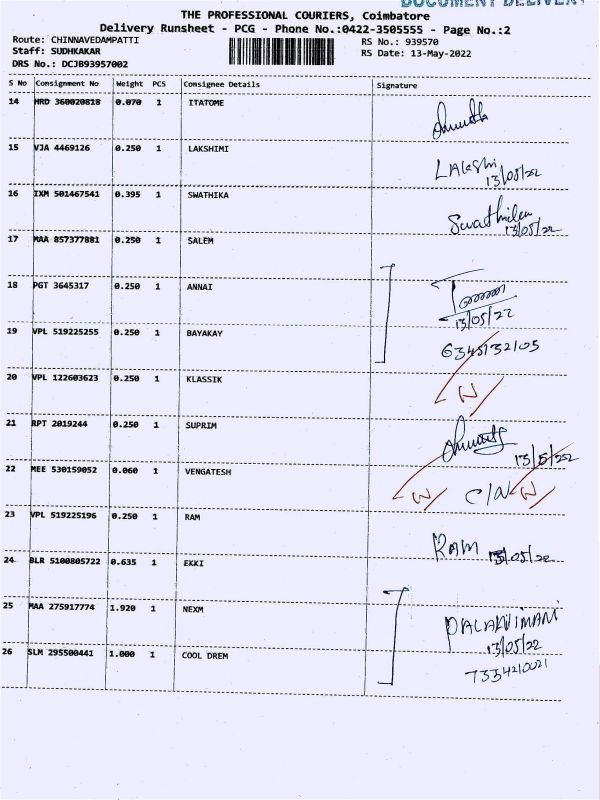 DOCUMENT DELIVERY
THE PROFESSIONAL COURIERS, Coimbatore
Delivery Runsheet - PCG - Phone No.:0422-3505555 - Page No.:2
Route: CHINNAVEDAMPATTI RS No.: 939570
Staff: SUDHKAKAR RS Date: 13-May-2022
DRS No.: DCJB93957002
S No Consignment No Weight PCS Consignee Details Signature
14 HRD 360020818 0.070 1 ITATOME
15 VJA 4469126 0.250 1 LAKSHIMI
LAkshi
13/05/22
16 IXM 501467541 0.395 1 SWATHIKA
Swathika
13/05/22
17 MAA 857377881 0.250 1 SALEM
18 PGT 3645317 0.250 1 ANNAI
13/05/22
19 VPL 519225255 0.250 1 BAYAKAY
6345132105
20 VPL 122603623 0.250 1 KLASSIK
N
21 RPT 2019244 0.250 1 SUPRIM
13/5/252
22 MEE 530159052 0.060 1 VENGATESH
N C/N N
23 VPL 519225196 0.250 1 RAM
RAM 13/05/22
24 BLR 5100805722 0.635 1 EKKI
25 MAA 275917774 1.920 1 NEXM
13/05/22
26 SLM 295500441 1.000 1 COOL DREM
7334210021